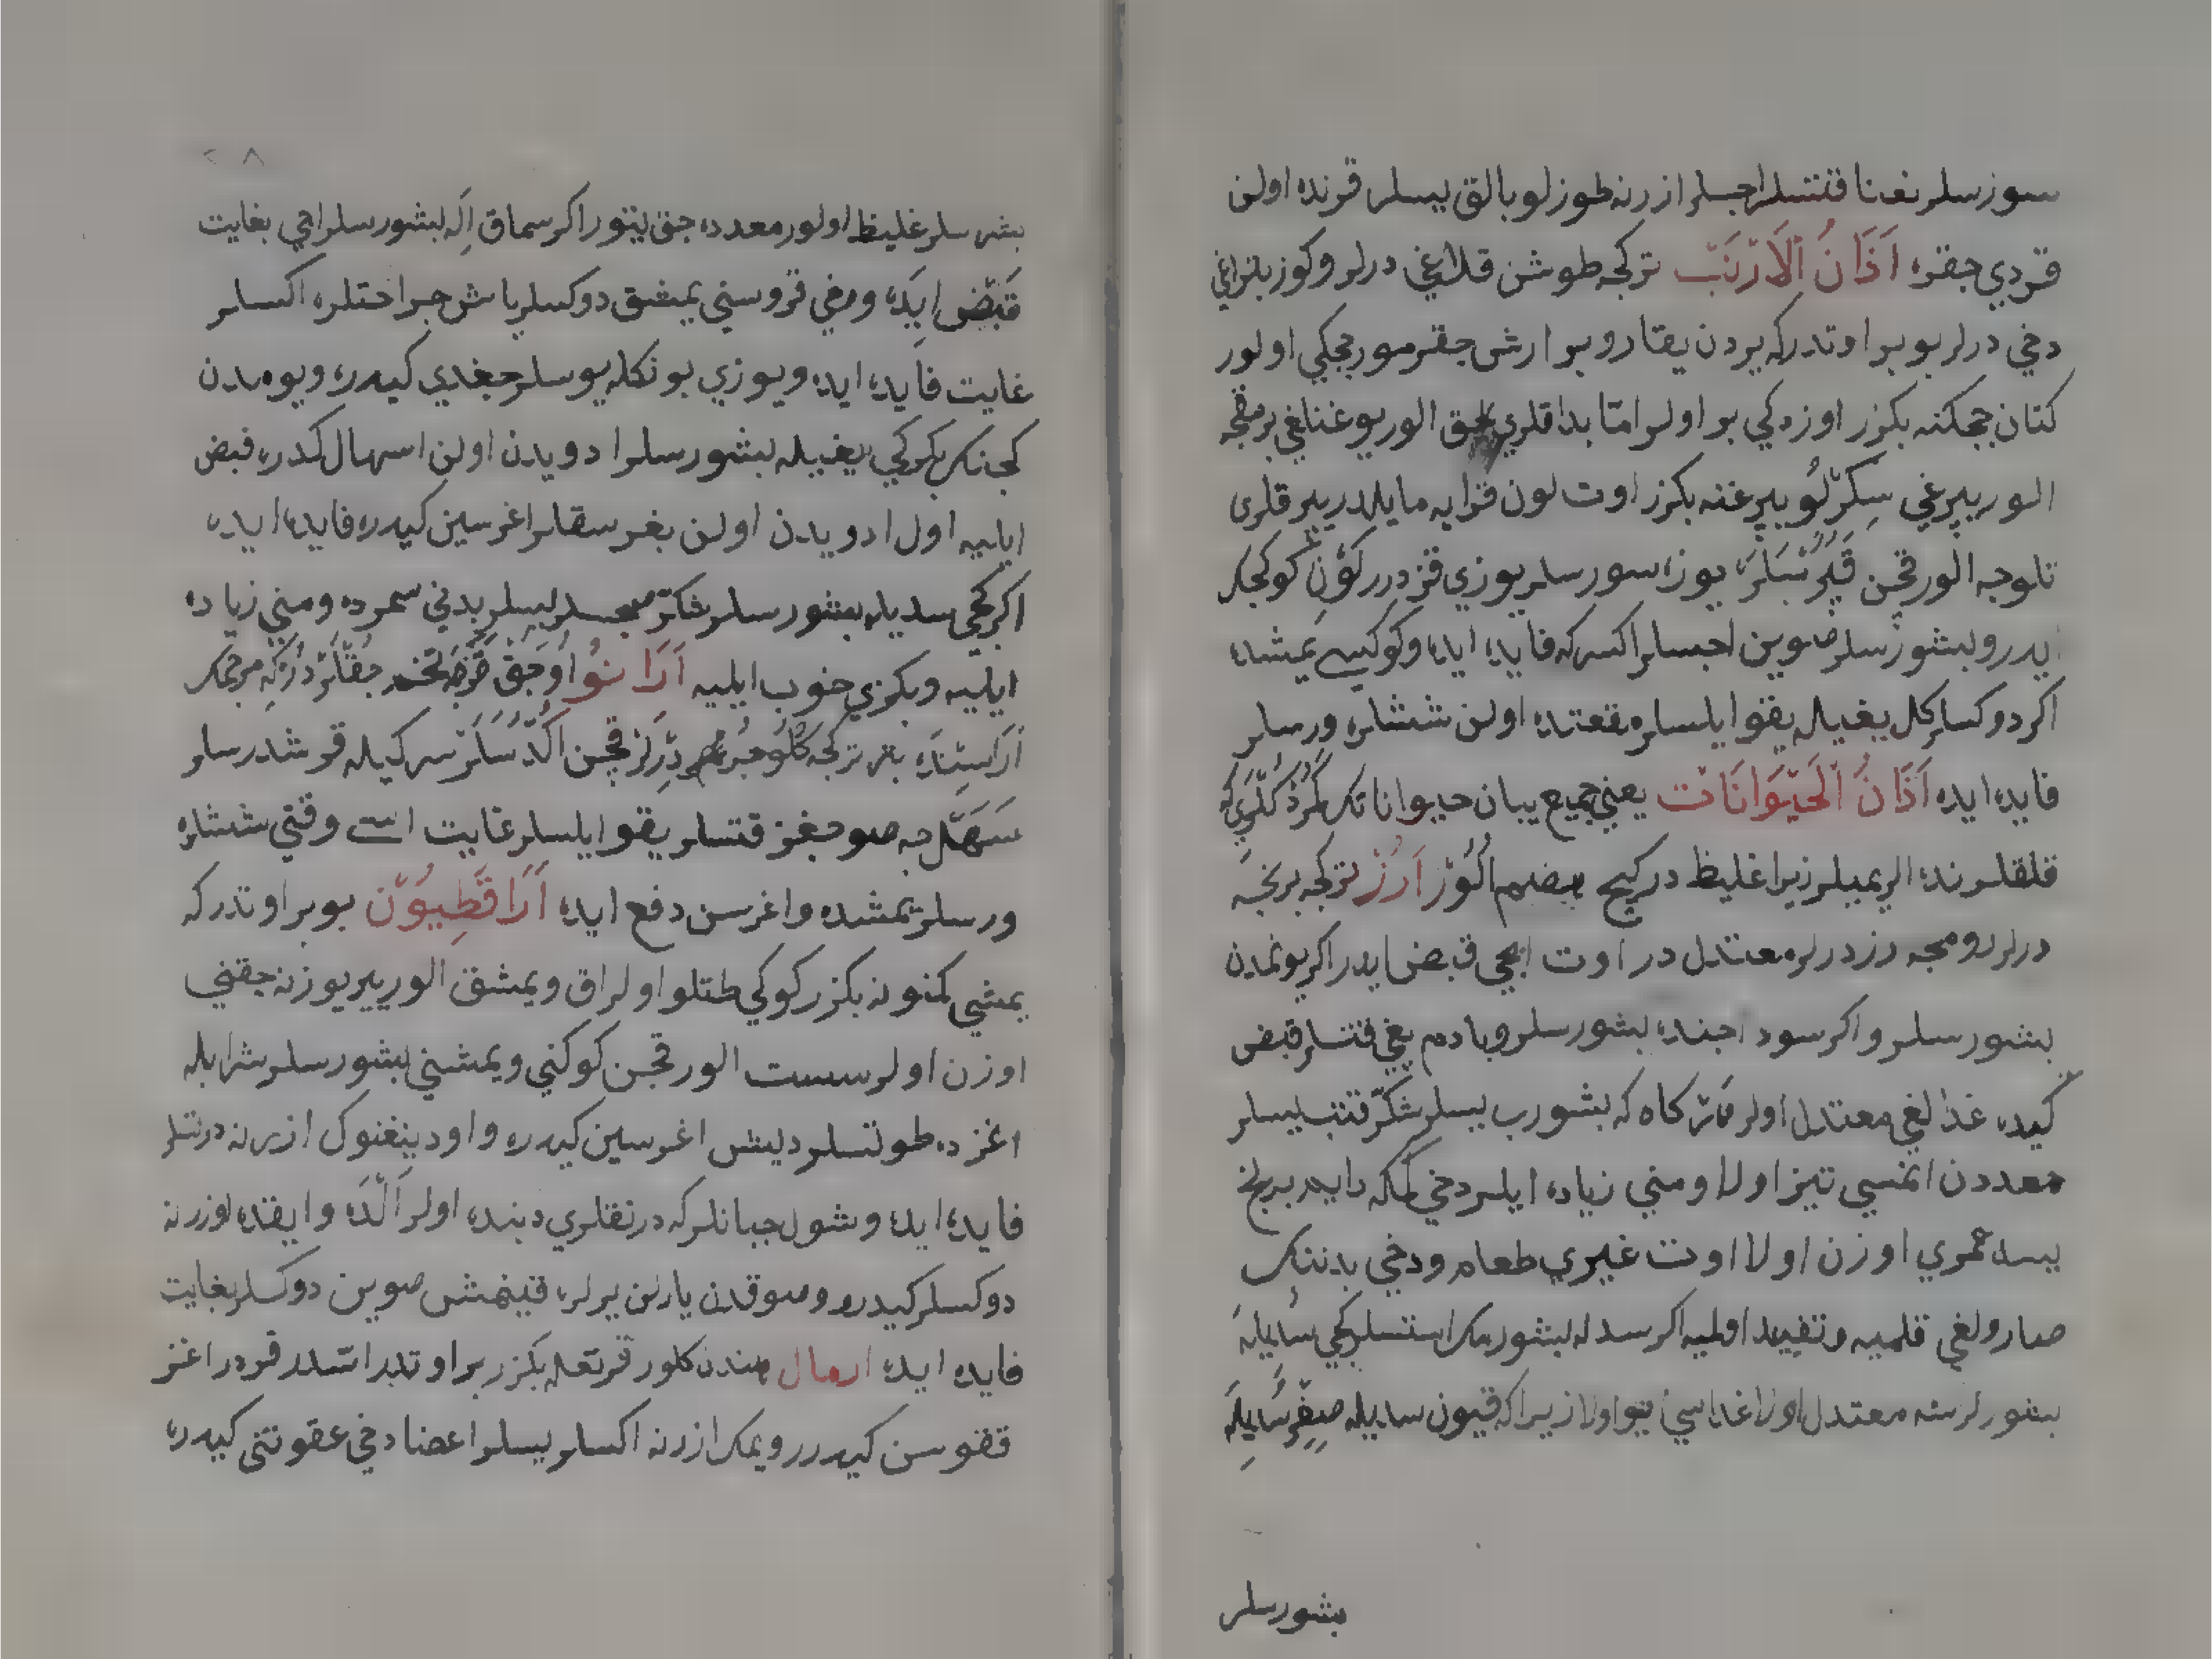 سوزسلر نعنا قتسلر اجسلر ازرنه طوزلو بالق ييسلر قرنده اولن
قردي جقره اَذَانُ اْلاَرْنَبْ تركجه طوشن قلاغي درلر وكوز بلزاغي
دخي درلر بو بر اوتدر كه يردن يقارو بر ارش جقر مور ججكي اولور
كتان ججكنه بكزر اوزه كي بر اولر امّا بداقلري الور بوغناغي برمقجه
الور يپرغي سِكِرْلُو يپرغنه بكزر اوت لون قرايه مايلدر يپرقلرى
تلوجه الور قچن قَپَرْسَلَرْ يوزه سورسلر يوزي قزدرر كوكجك
ايدر وبشورسلر صوين اجسلر اكسركه فايده ايده وكوكسي يمشده
اكر دوكسلر كل يغيله يقو ايلسلر مقعتده اولن ششلره ورسلر
فايده ايده اَذَانُ اْلحَيْوَانَاتْ يعني جميع يبان حيوانانك
قلقلرنده الريميلر زيرا غليظ در كيج هضم الُوُرْ اَرُزْ تركجه برنجه
درلر رومجه رزدرلر معتدل در اوت ايچي قبض ايدر اكر يونمدن
بشورسلر واكر سود اجنده بشورسلر وبادم يغي قتسلر قبض
كيده غذالغي معتدل اولر كاه كه بشورب ييسلر شكر قتب ييسلر
معددن انمسي تيز اولا ومني زياده ايلر دخي دايم برنج
ييسه عمري اوزن اولا اوت غيري طعام ودخي بدننك
صارولغي قلميه وتفييد اولميه اكر سدله بشورمك استسلر كچي سُديلَه
بشورلر معتدل اولا غداسي ايو اولا زيرا كه قيون سديله صِغِر سُديلَه
بشورسلر
٢٨
بشرسلر غليظ اولور معدده جق يتور اكر سماق اِلَه بشورسلر اچي بغايت
قَبْض ايده ومغي قروسني يمشق دوكسلر باش جراحتلره اكسلر
غايت فايده ايده ويوزي بونكله يوسلر جغدي كيدره وبوه مدن
كچنك بكركي يغييله بشورسلر ادويدن اولن اسهال كدره قبض
ايليه اول ادويدن اولن بغرسقلر اغرسين كيدره فايده ايده
اكر كچي سديله بشورسلر شكر ييسلر بدني سمرده ومني زياده
ايليه وبكزي خوب ايليه اَرَانُوا اُوجَقْ جقلر درر كه مرجمك
اَرَاسِنْدَه بتر تركجه دِرلَرْ قچن سركيله قوشدرسلر
سَهَلْجه صو جغز قتسلر يقو ايلسلر غايت اسى وقتي ششلره
ورسلر يمشده واغرسن دفع ايده اَرَاقَطِيوُنْ بو بر اوتدر كه
يمشي كمنونه بكزر كوكي طتلو اولر اق ويمشق الور يپر يوزنه جقني
اوزن اولر سست الور قچن كوكني ويمشني بشورسلر شرابله
اغزده طوتسلر ديش اغرسين كيدره واود ينغنوك ازرنه درتسلر
فايده ايده وشول جبانلر كه درنقلري دبنده اولر اَلْدَه وايقده اوزرنه
دوكسلر كيدرر وصوقدن يارلن يرلره قينمش صوين دوكسلر بغايت
فايده ايده ارمال هندن كلور قرنقله بكزر بر اوتدر استدر قردر اغز
قفوسن كيدرر ويمك ازرنه اكسلر ييسلر اعضا دخي عفونتني كيدره